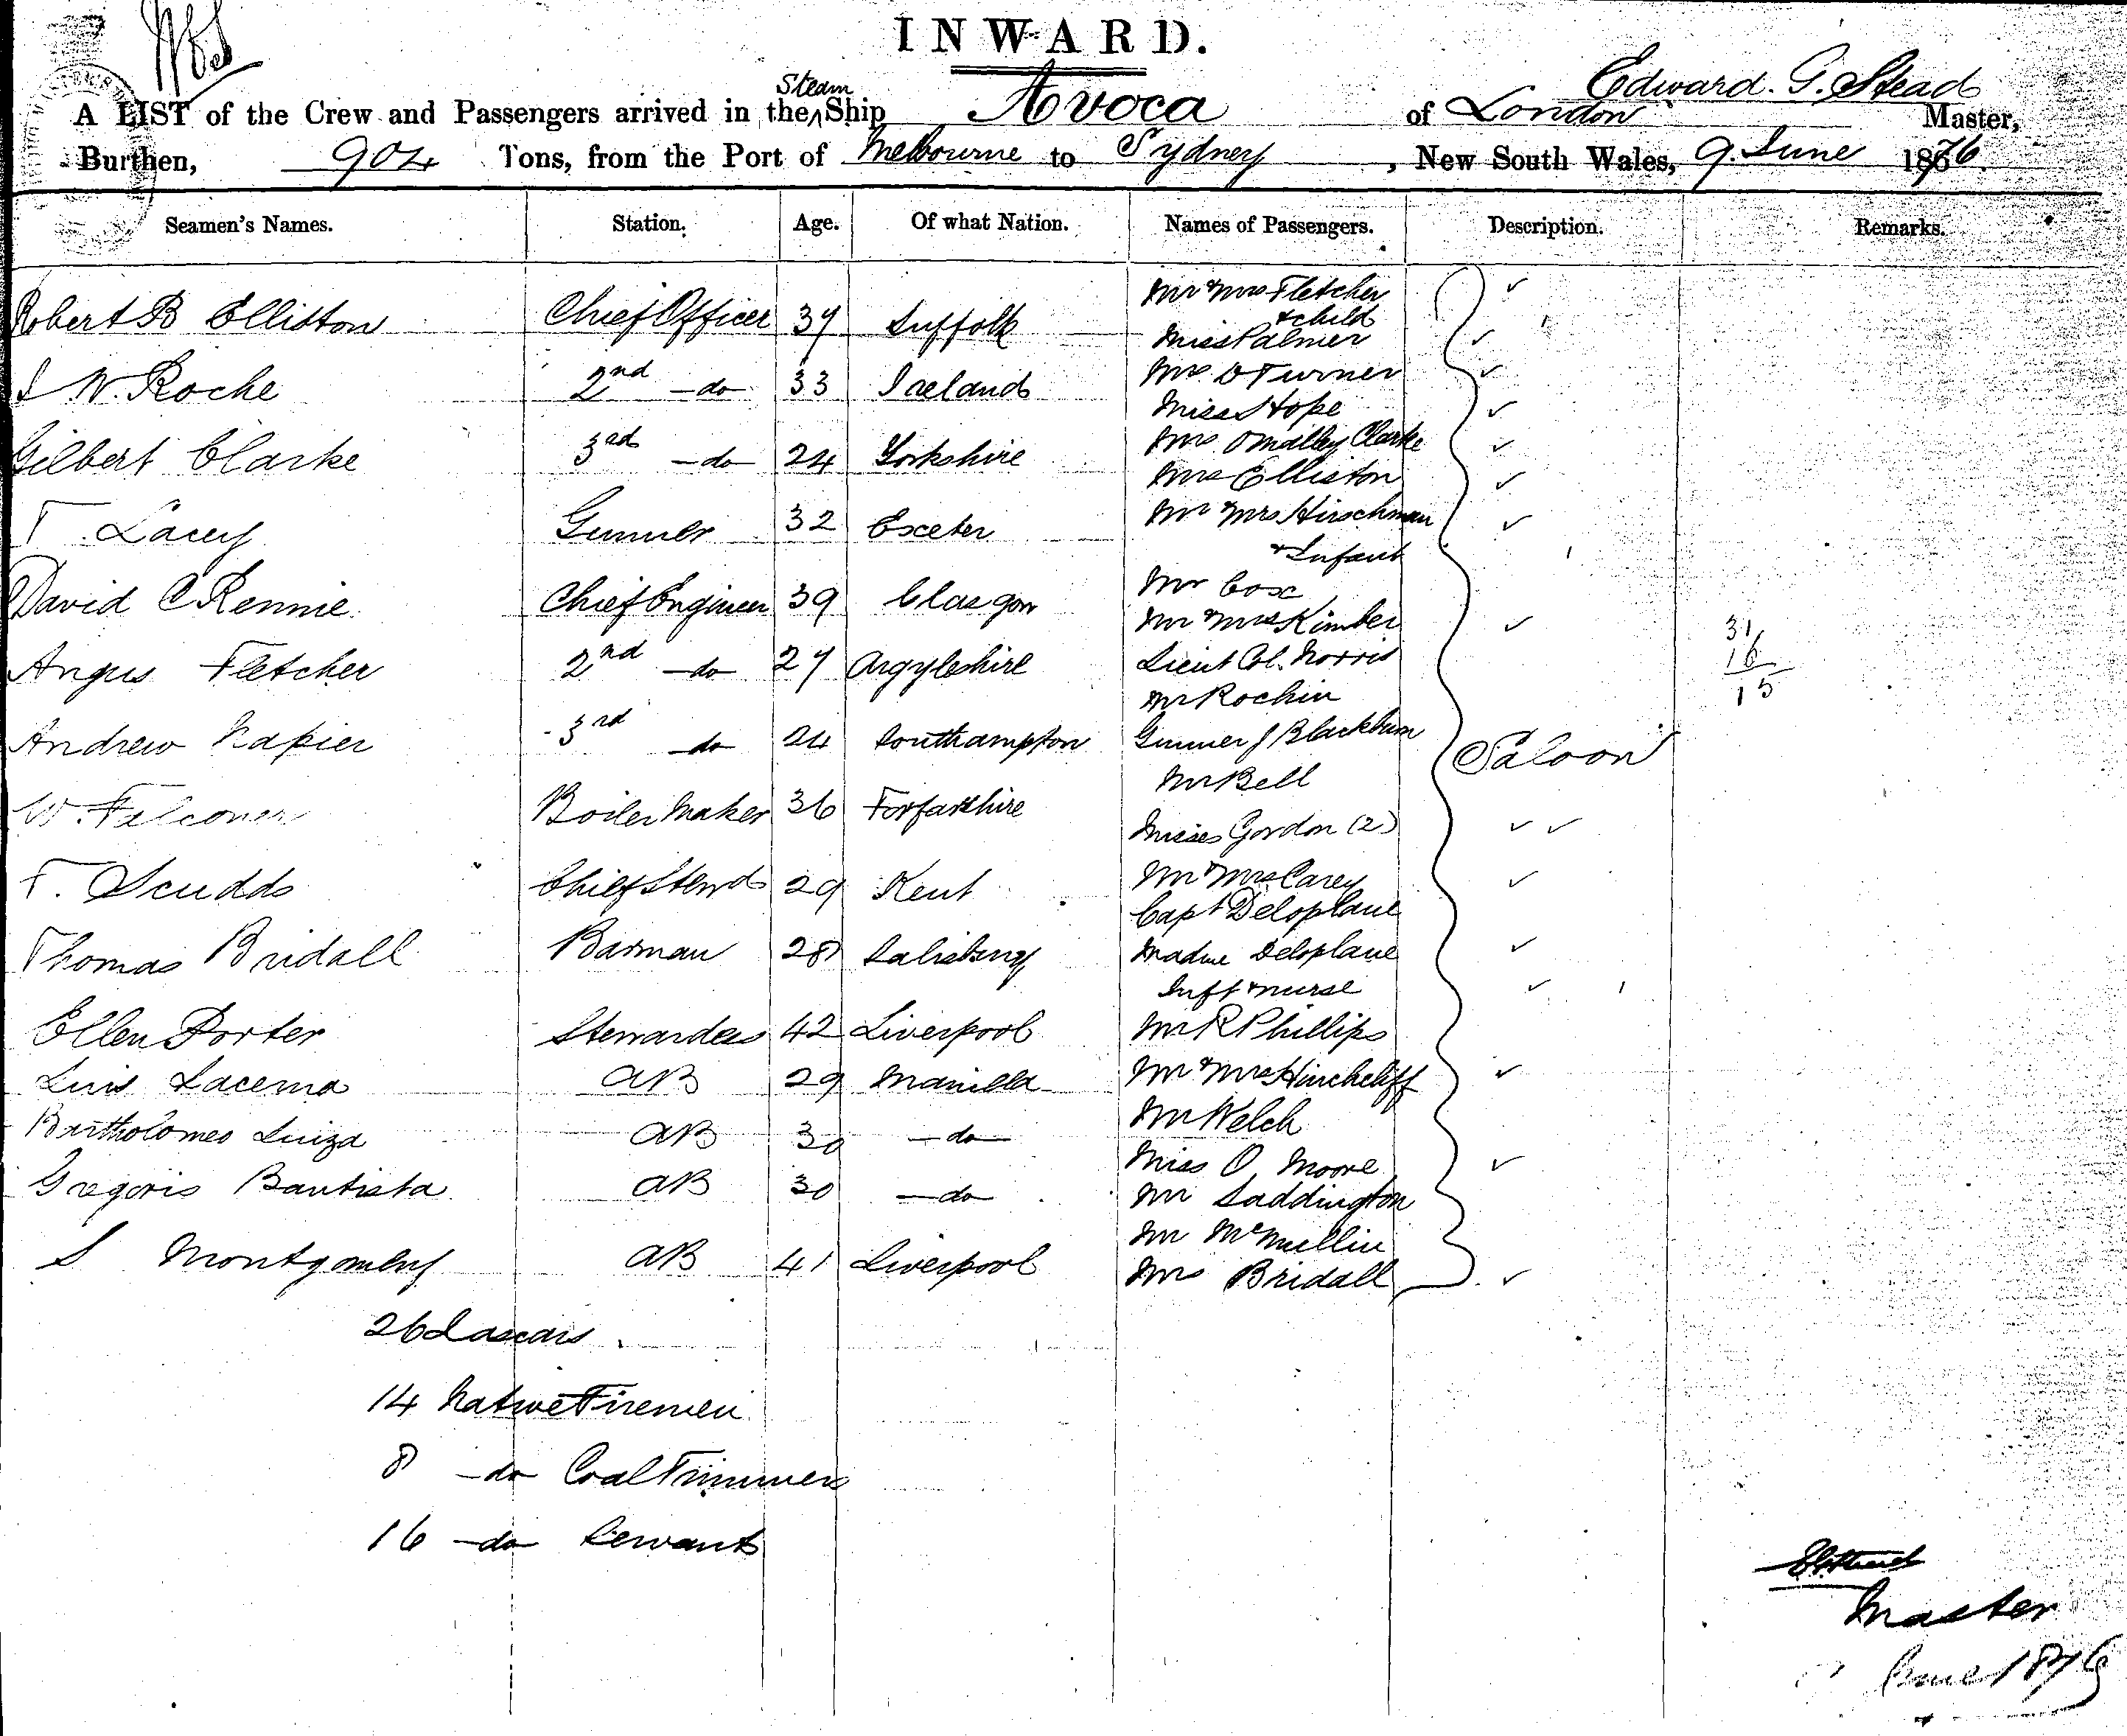 INWARD.
Edward. G. Stead
Steam
A LIST of the Crew and Passengers arrived in the Ship Avoca of London Master,
Burthen, 904 Tons, from the Port of Melbourne to Sydney, New South Wales, 9. June 1876
Seamen's Names. Station. Age. Of what Nation. Names of Passengers. Description. Remarks.
Mr & Mrs Fletcher
Robert B Elliston Chief Officer 37 Suffolk & child
Miss Palmer
I W. Roche 2nd -do- 33 Ireland Mrs. O Turner
Miss Hope
Gilbert Clarke 3rd -do- 24 Yorkshire Mrs Omalley Clarke
Mrs Elliston
T. Lacey Gunner 32 Exeter Mr & Mrs Hirschman
& Infant
David C Rennie. Chief Engineer 39 Glasgow Mr Cox
Mr & Mrs Kimber 31
Angus Fletcher 2nd -do- 27 Argyleshire Lieut Col. Norris 16
Mr Rochin 15
Andrew Napier 3rd -do- 24 Southampton Gunner J Blackburn Saloon
Mr Bell
W. Falconer Boiler Maker 36 Forfarshire
Misses Gordon (2)
F. Scudds Chief Stewd 29 Kent Mr & Mrs Carey
Capt Deloplane
Thomas Bridall Barman 28 Salisbury Madme Deloplane
Inft & nurse
Ellen Porter Stewardess 42 Liverpool Mr R Phillips
Luis Lacerna AB 29 Manilla Mr & Mrs Hinchcliff
Bartholomeo Luiza AB 30 -do- Mr Welch
Miss O Moore
Gregoris Bautista AB 30 -do- Mr Saddington
Mr McMullin
S Montgomery AB 41 Liverpool Mrs Bridall
26 Lascars
14 Native Firemen
8 -do- Coal Trimmers
16 -do- Servants
Master
June 1876